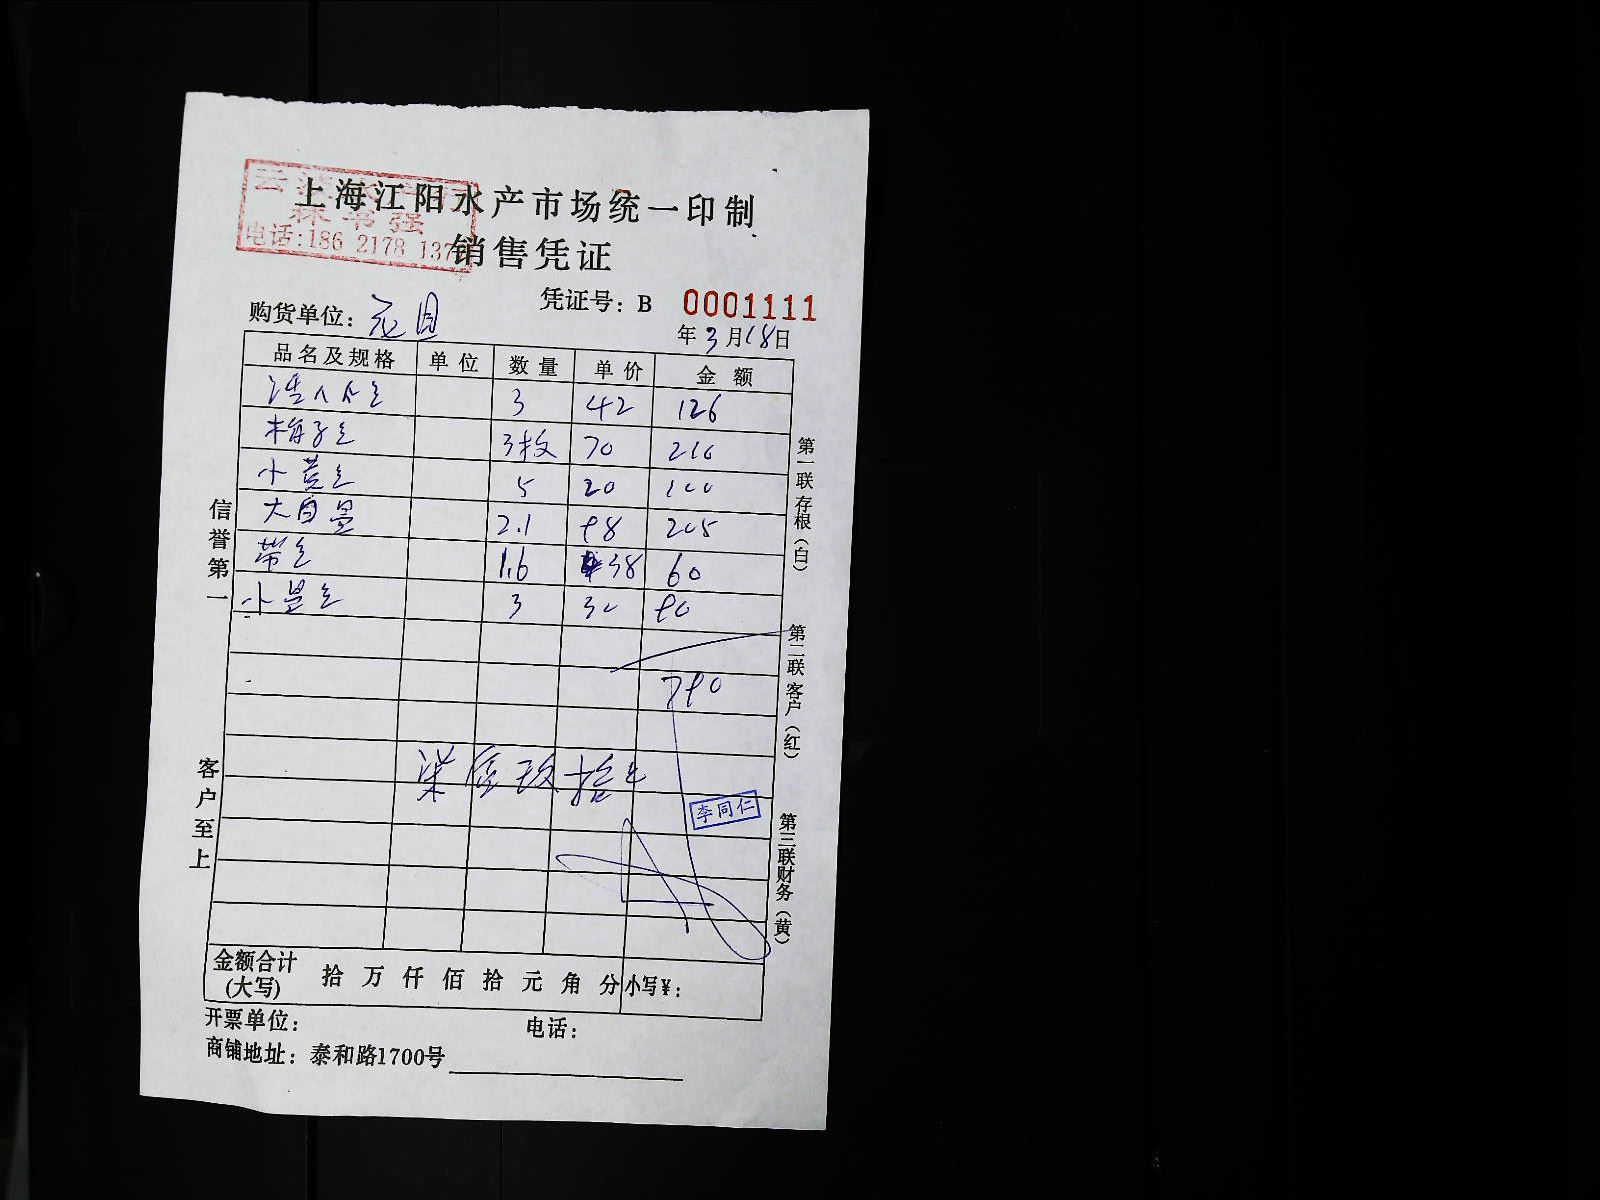 上海江阳水产市场统一印制
电话:186 2178 137
销售凭证
凭证号: B 0001111
购货单位: 花园
年 3 月 18 日
品名及规格 单位 数量 单价 金额
3 42 126
梅子 3板 70 210
小黄 5 20 100
大白 2.1 98 205
带 1.6 38 60
小 3 30 90
790
柒佰玖拾元
李同仁
金额合计(大写) 拾 万 仟 佰 拾 元 角 分 小写¥:
开票单位: 电话:
商铺地址: 泰和路1700号
信誉第一
客户至上
第一联存根(白)
第二联客户(红)
第三联财务(黄)